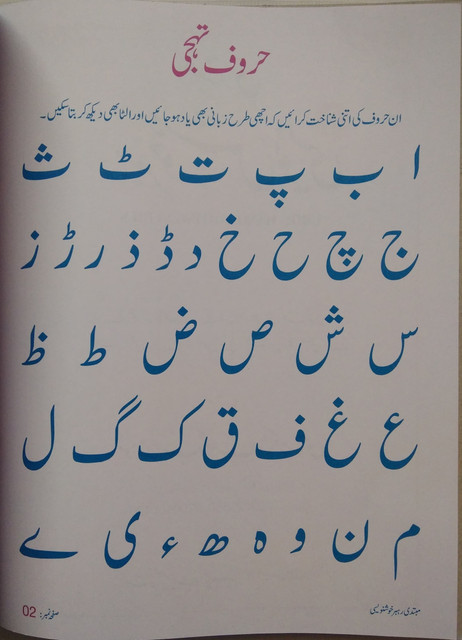 حروف تہجی
ان حروف کی اتنی شناخت کرائیں کہ اچھی طرح زبانی بھی یاد ہو جائیں اور الٹا بھی دیکھ کر بتا سکیں۔
ا ب پ ت ٹ ث
ج چ ح خ د ڈ ذ ر ڑ ز
س ش ص ض ط ظ
ع غ ف ق ک گ ل
م ن و ہ ھ ء ی ے
مبتدی رہبر خوشنویسی
صفحہ نمبر: 02